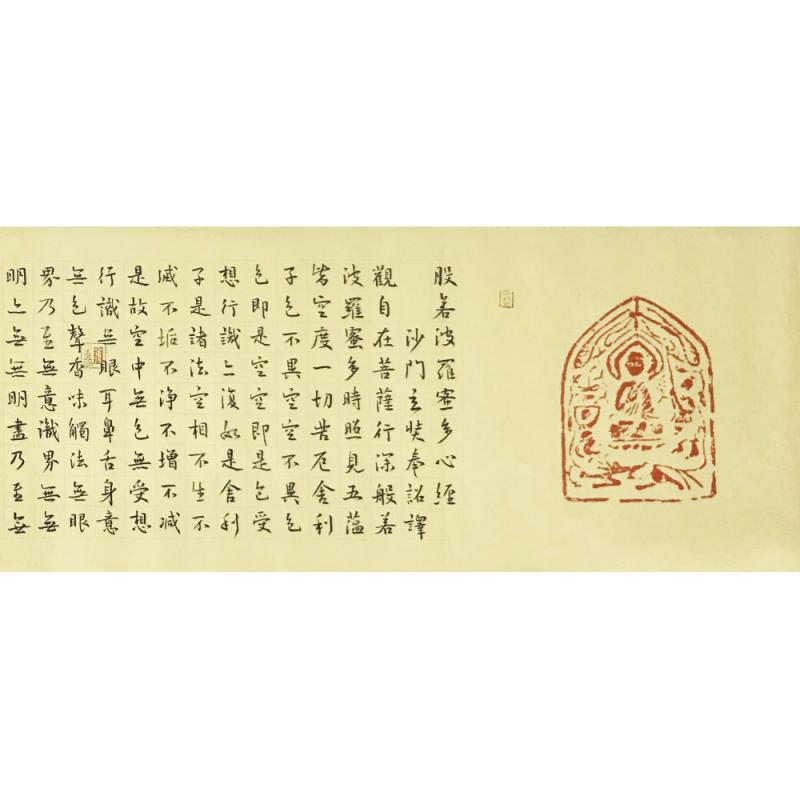 般若波羅蜜多心經
沙門玄奘奉詔譯
觀自在菩薩行深般若
波羅蜜多時照見五蘊
皆空度一切苦厄舍利
子色不異空空不異色
色即是空空即是色受
想行識亦復如是舍利
子是諸法空相不生不
滅不垢不淨不增不減
是故空中無色無受想
行識無眼耳鼻舌身意
無色聲香味觸法無眼
界乃至無意識界無無
明亦無無明盡乃至無